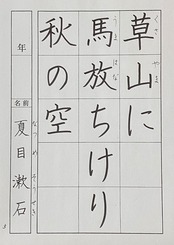 草山に
くさ
やま
馬放ちけり
うま
はな
秋の空
年
名前
夏目漱石
なつめそうせき